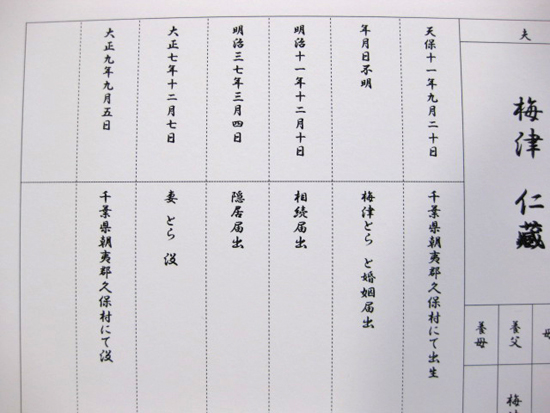 夫
梅津 仁蔵
養父
梅津
養母
天保十一年九月二十日
千葉県朝夷郡久保村にて出生
年月日不明
梅津とら と婚姻届出
明治十一年十二月十日
相続届出
明治三七年三月四日
隠居届出
大正七年十二月七日
妻 とら 没
大正九年九月五日
千葉県朝夷郡久保村にて没